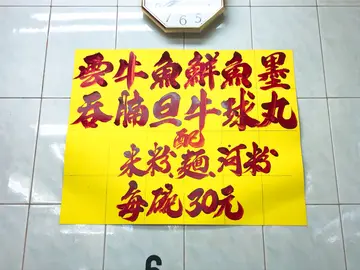 7 6 5
雲吞
牛腩
魚旦
鮮牛
魚球
墨丸
配
米粉麵河粉
每碗30元